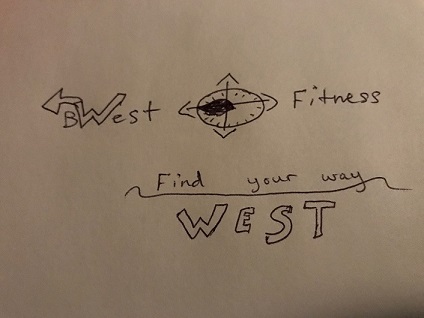 BWest Fitness
Find your way
WEST